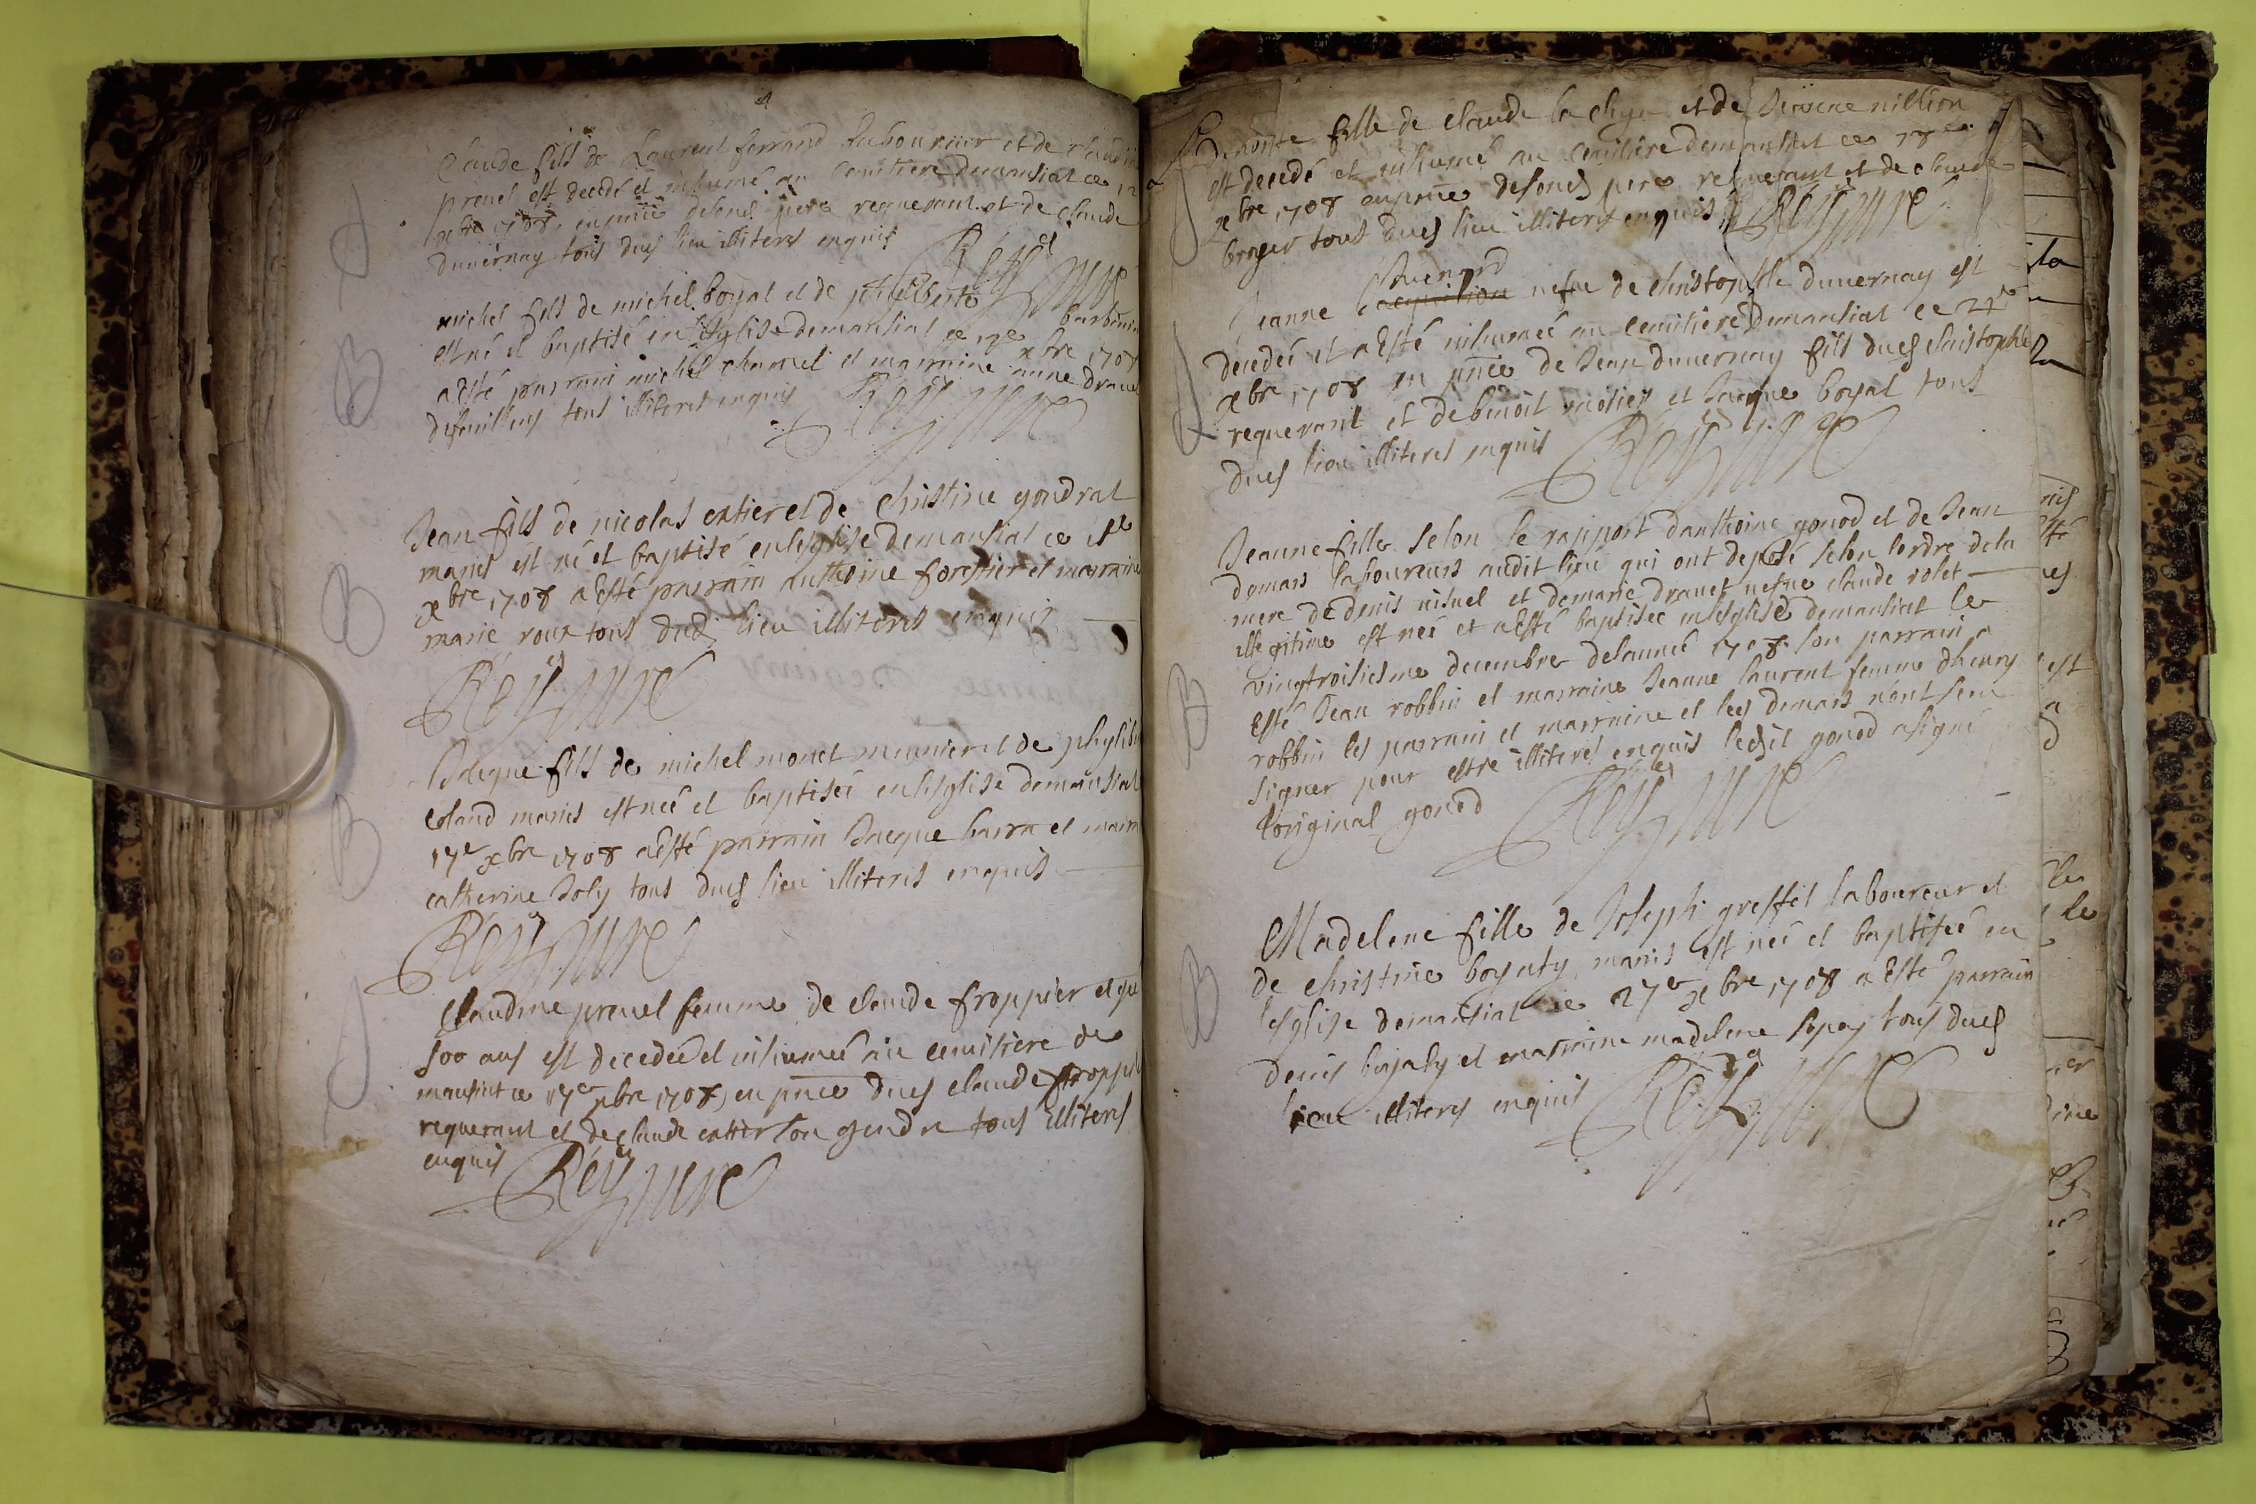 Claude fils de Laurent ferrand laboureur et de claudine
preuel est decedé et inhumé au cemitiere demansiat ce 12
xbre 1708 en pnce desond pere requerant et de claude
duuernay tous dues lieu illiteres enquis
Reÿ cure
michel fils de michel boyat et de philiberte barbin
est né et baptisé en l'esglise demansiat ce xbre 1708
a esté parrain michel charuel et marraine anne drauet
tous illiteres enquis
Reÿ cure
Jean fils de nicolas extier et de christine gondrat
mariés est né et baptisé en lesglise demansiat ce
xbre 1708 a esté parrain anthoine forestier et marraine
marie roux tous dud lieu illiteres enquis
Reÿ cure
Jacque fils de michel monet meunier et de phylib
coland mariés est neé et baptiseé en lesglise demansiat
17e xbre 1708 a esté parrain Jacque barra et marra
catherine Joly tous dues lieu illiteres enquis
Reÿ cure
Claudine preuel femme de claude froppier ageé
soo ans est decedeé et inhumeé au cemitiere de
mansiat ce 17e xbre 1708, en pnce dues claude froppier
requerant et de claude extier son gendre tous illiteres
enquis Reÿ cure
B
B
B
B
fille de claude et de nillion
est decedé et inhumé au cemitiere demansiat ce 18e
xbre 1708 en pnce desond pere requerant et de claude
broyer tous dues lieu illiteres enquis Reÿ cure
Jeanne vefue de christophle duuernay est
decedeé et a esté inhumeé au cemitiere demansiat ce 21e
xbre 1708 en pnce de Jean duuernay fils dues christophle
requerant et de benoit et Jacque boyat tous
dues lieu illiteres enquis Reÿ cure
Jeanne fille selon le rapport danthoine gonod et de Jean
demars laboureurs audit lieu qui ont deposé selon lordre dela
mere de denis uisuel et demarie drauet vefue claude rolet
illegitime est neé et a esté baptiseé en lesglise demansiat le
vingtroisiesme decembre delanneé 1708 son parrain a
esté Jean robbin et marraine Jeanne laurent femme dhenry
robbin les parrain et marraine et les demars nont sceu
signer pour estre illiteres enquis ledit gonod a signé
loriginal gonod Reÿ cure
Madelene fille de Joseph greffet laboureur et
de christine boyaty mariés est neé et baptiseé en
lesglise demansiat ce 27e xbre 1708 a esté parrain
denis boyaty et marraine madelene tous dues
lieu illiteres enquis Reÿ cure
B
B